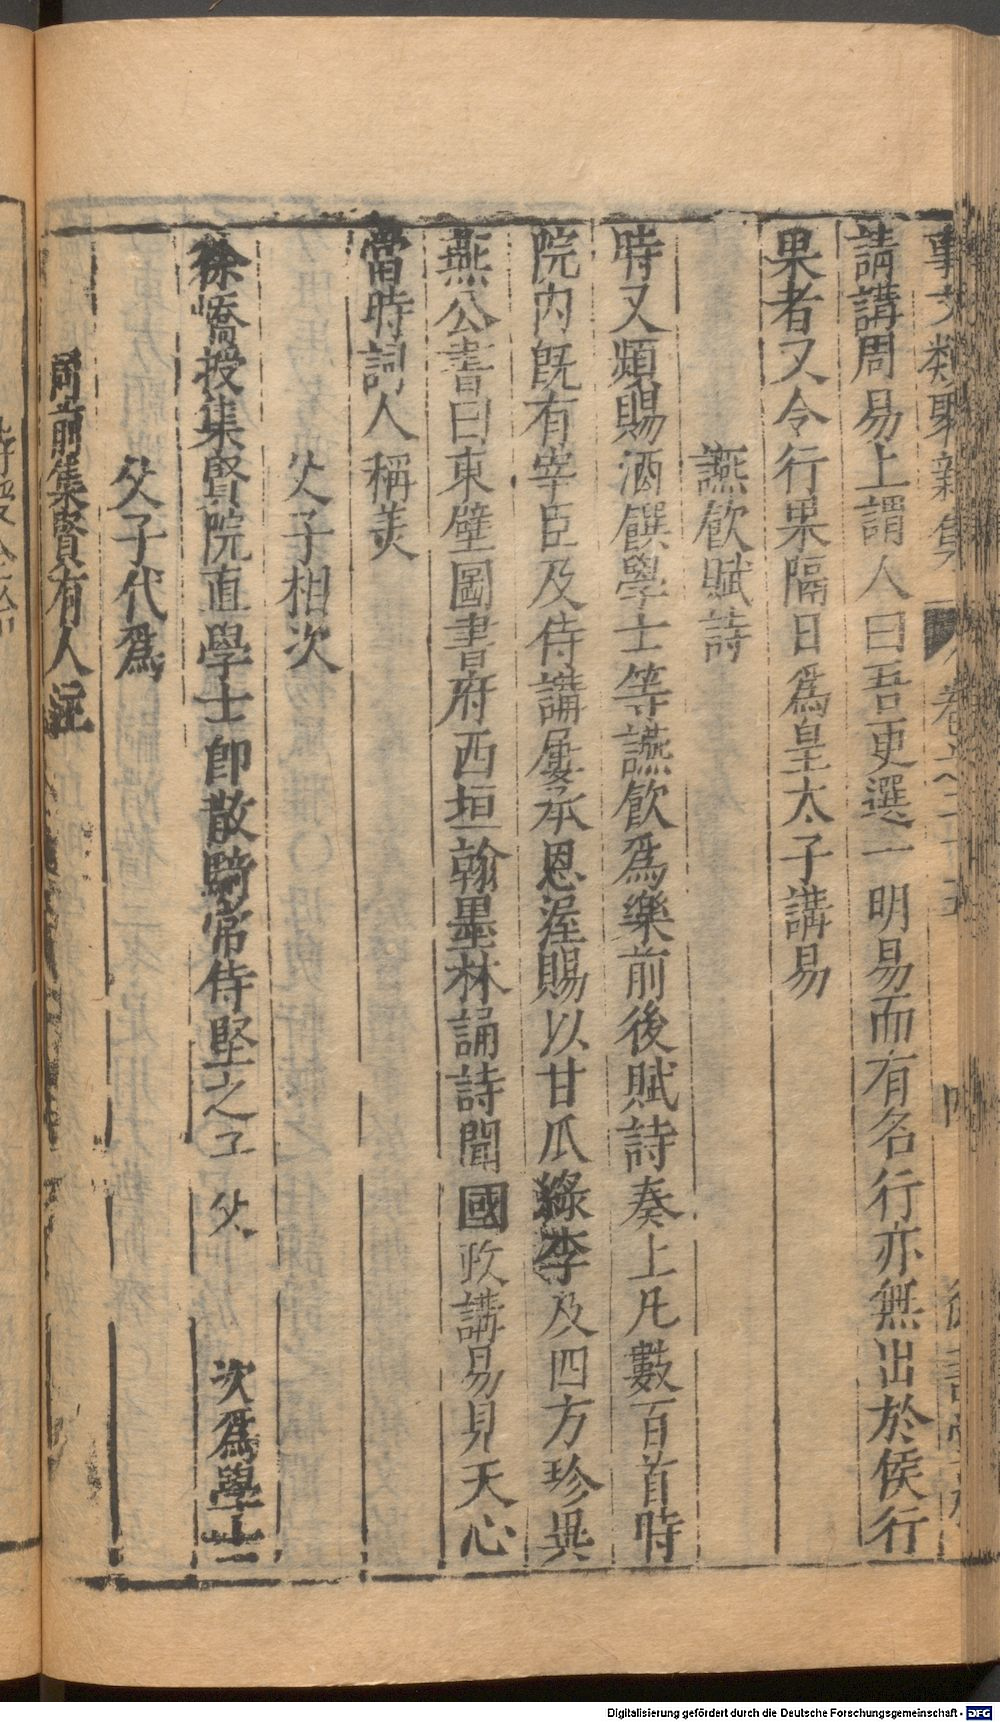 事文類聚新集 卷之二十五 四 德壽堂梓
請講周易上謂人曰吾更選一明易而有名行亦無出於侯行
果者又令行果隔日爲皇太子講易
讌飲賦詩
時又頻賜酒饌學士等讌飲爲樂前後賦詩奏上凡數百首時
院內旣有宰臣及侍講屢承恩渥賜以甘瓜綠李及四方珍異
燕公書曰東壁圖書府西垣翰墨林誦詩聞國政講易見天心
當時詞人稱美
父子相次
徐嶠授集賢院直學士卽散騎常侍堅之子 父 次爲學士
父子代爲
前集賢有人注
Digitalisierung gefördert durch die Deutsche Forschungsgemeinschaft - DFG